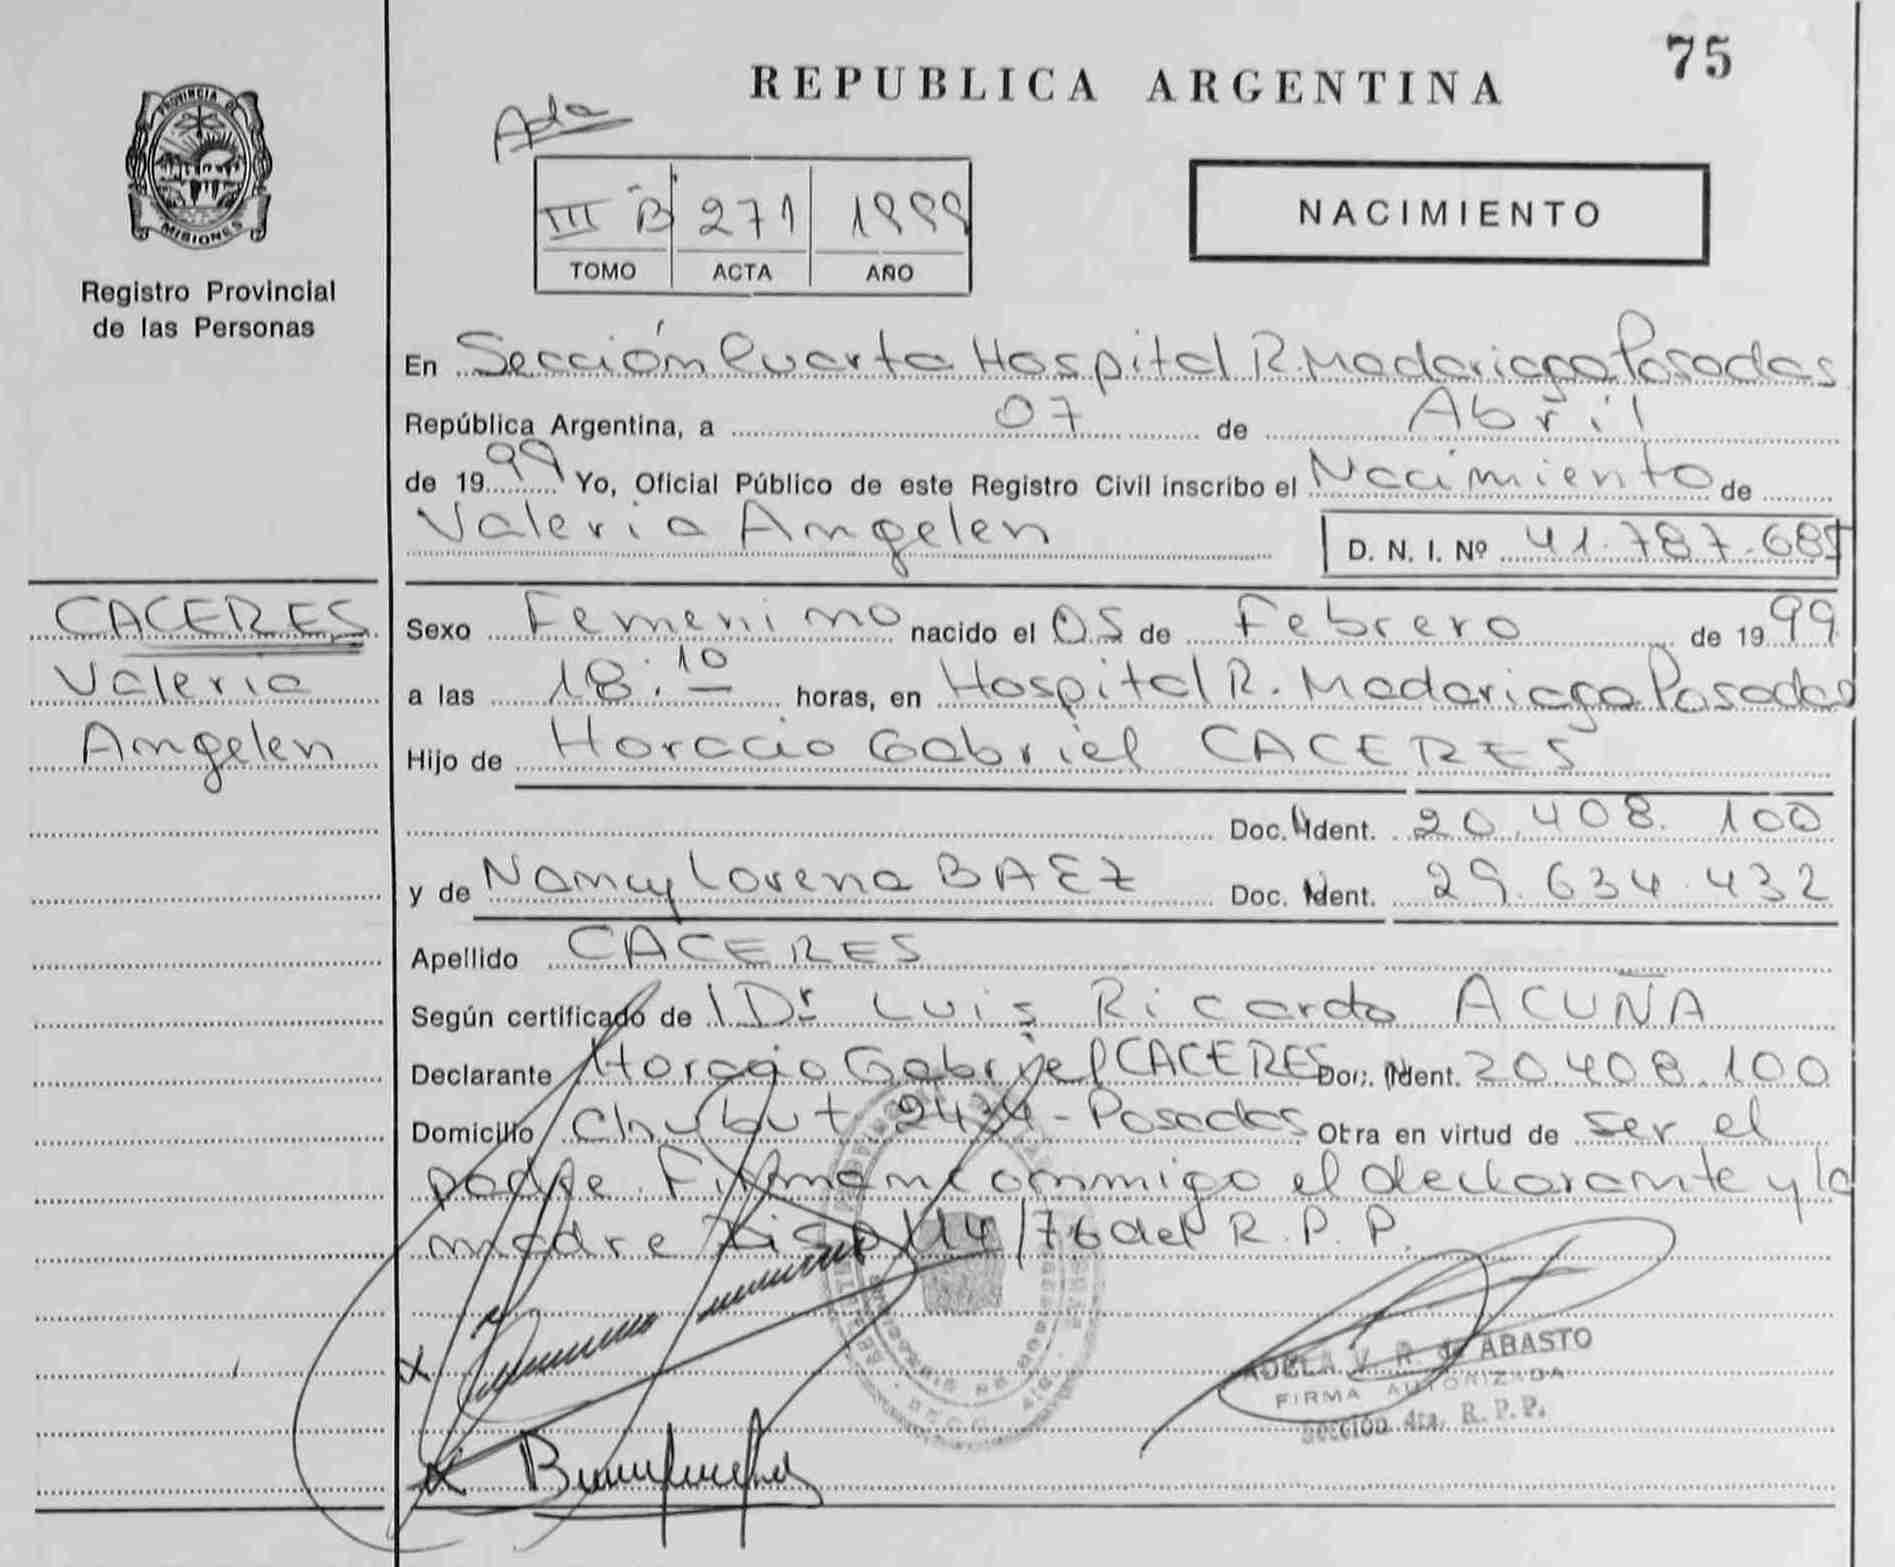 75
REPUBLICA ARGENTINA
PROVINCIA DE
MISIONES
Registro Provincial
de las Personas
III B 271 1999
TOMO ACTA AÑO
NACIMIENTO
En Sección Cuarta Hospital R. Madariaga Posadas
República Argentina, a 07 de Abril
de 1999 Yo, Oficial Público de este Registro Civil inscribo el Nacimiento de
Valeria Angelen D. N. I. Nº 41.787.685
CACERES
Valeria
Angelen
Sexo Femenino nacido el 05 de Febrero de 1999
a las 18:10 horas, en Hospital R. Madariaga Posadas
Hijo de Horacio Gabriel CACERES
Doc. Ident. 20.408.100
y de Nancy Lorena BAEZ Doc. Ident. 29.634.432
Apellido CACERES
Según certificado de l Dr Luis Ricardo ACUÑA
Declarante Horacio Gabriel CACERES Doc. Ident. 20.408.100
Domicilio Chubut 2434 - Posadas Obra en virtud de ser el
padre. Firman conmigo el declarante y la
madre Disp 114/76 del R. P. P.
ADELA V. R. de ABASTO
FIRMA AUTORIZADA
Sección 4ta. R. P. P.